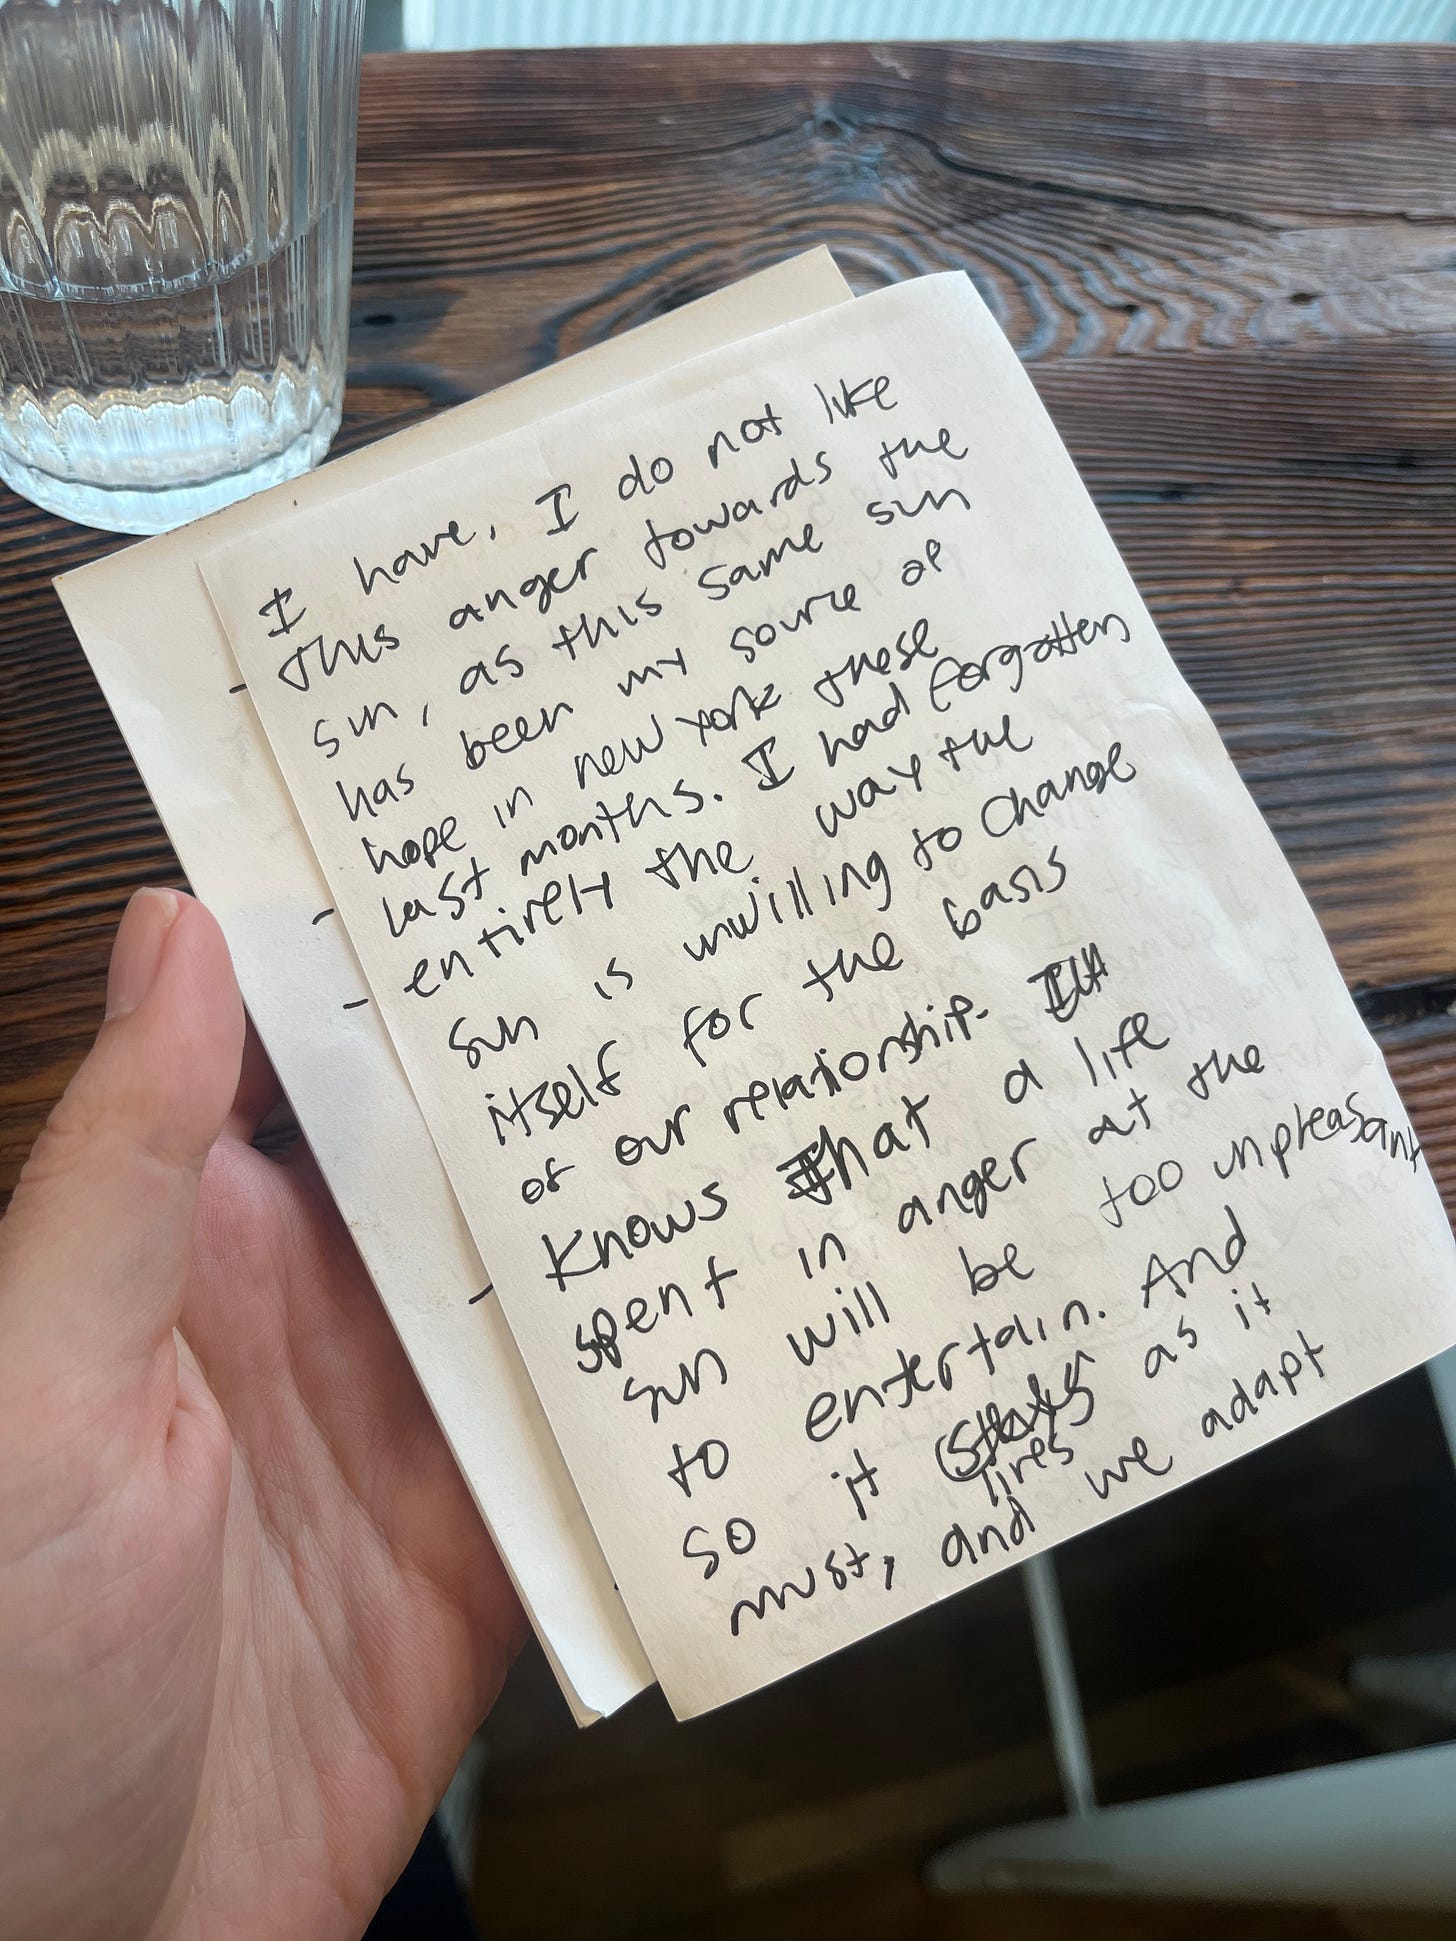 I have, I do not like
this anger towards the
sun, as this same sun
has been my source of
hope in new york these
last months. I had forgotten
entirely the way the
sun is unwilling to change
itself for the basis
of our relationship. It
knows that a life
spent in anger at the
sun will be too unpleasant
to entertain. And
so it stays as it
lives
must, and we adapt